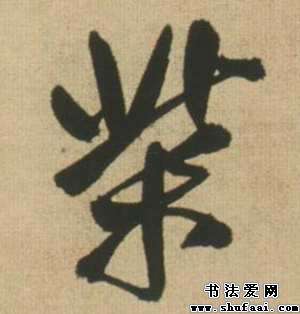 柴
书法爱网
www.shufaai.com